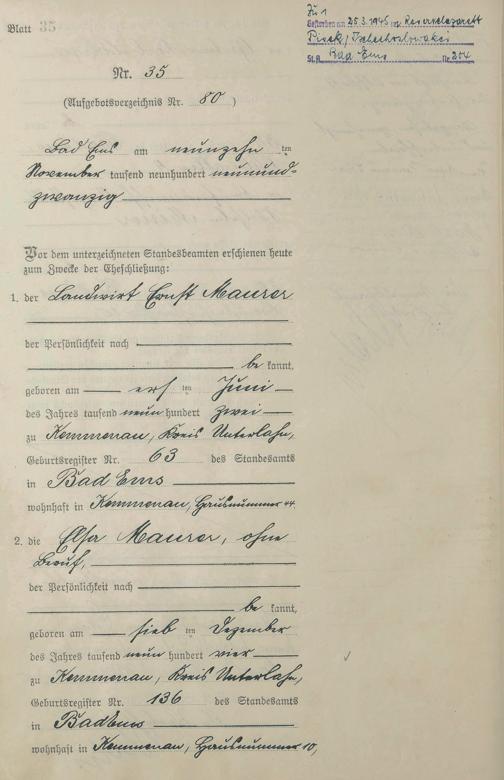 Blatt 35
Zu 1
Gestorben am 25.3.1945 in Reservelazarett
Pisek/Tschechoslowakei
St.A. Bad Ems Nr. 254
Nr. 35
(Aufgebotsverzeichnis Nr. 80)
Bad Ems am neunzehn ten
November tausend neunhundert neunund-
zwanzig
Vor dem unterzeichneten Standesbeamten erschienen heute
zum Zwecke der Eheschließung:
1. der Landwirt Ernst Maurer
der Persönlichkeit nach
be kannt,
geboren am elf ten Juni
des Jahres tausend neun hundert zwei
zu Kemmenau, Kreis Unterlahn,
Geburtsregister Nr. 63 des Standesamts
in Bad Ems
wohnhaft in Kemmenau, Hausnummer 44.
2. die Elsa Maurer, ohne
Beruf,
der Persönlichkeit nach
be kannt,
geboren am sieb ten Dezember
des Jahres tausend neun hundert vier
zu Kemmenau, Kreis Unterlahn,
Geburtsregister Nr. 136 des Standesamts
in Bad Ems
wohnhaft in Kemmenau, Hausnummer 10,